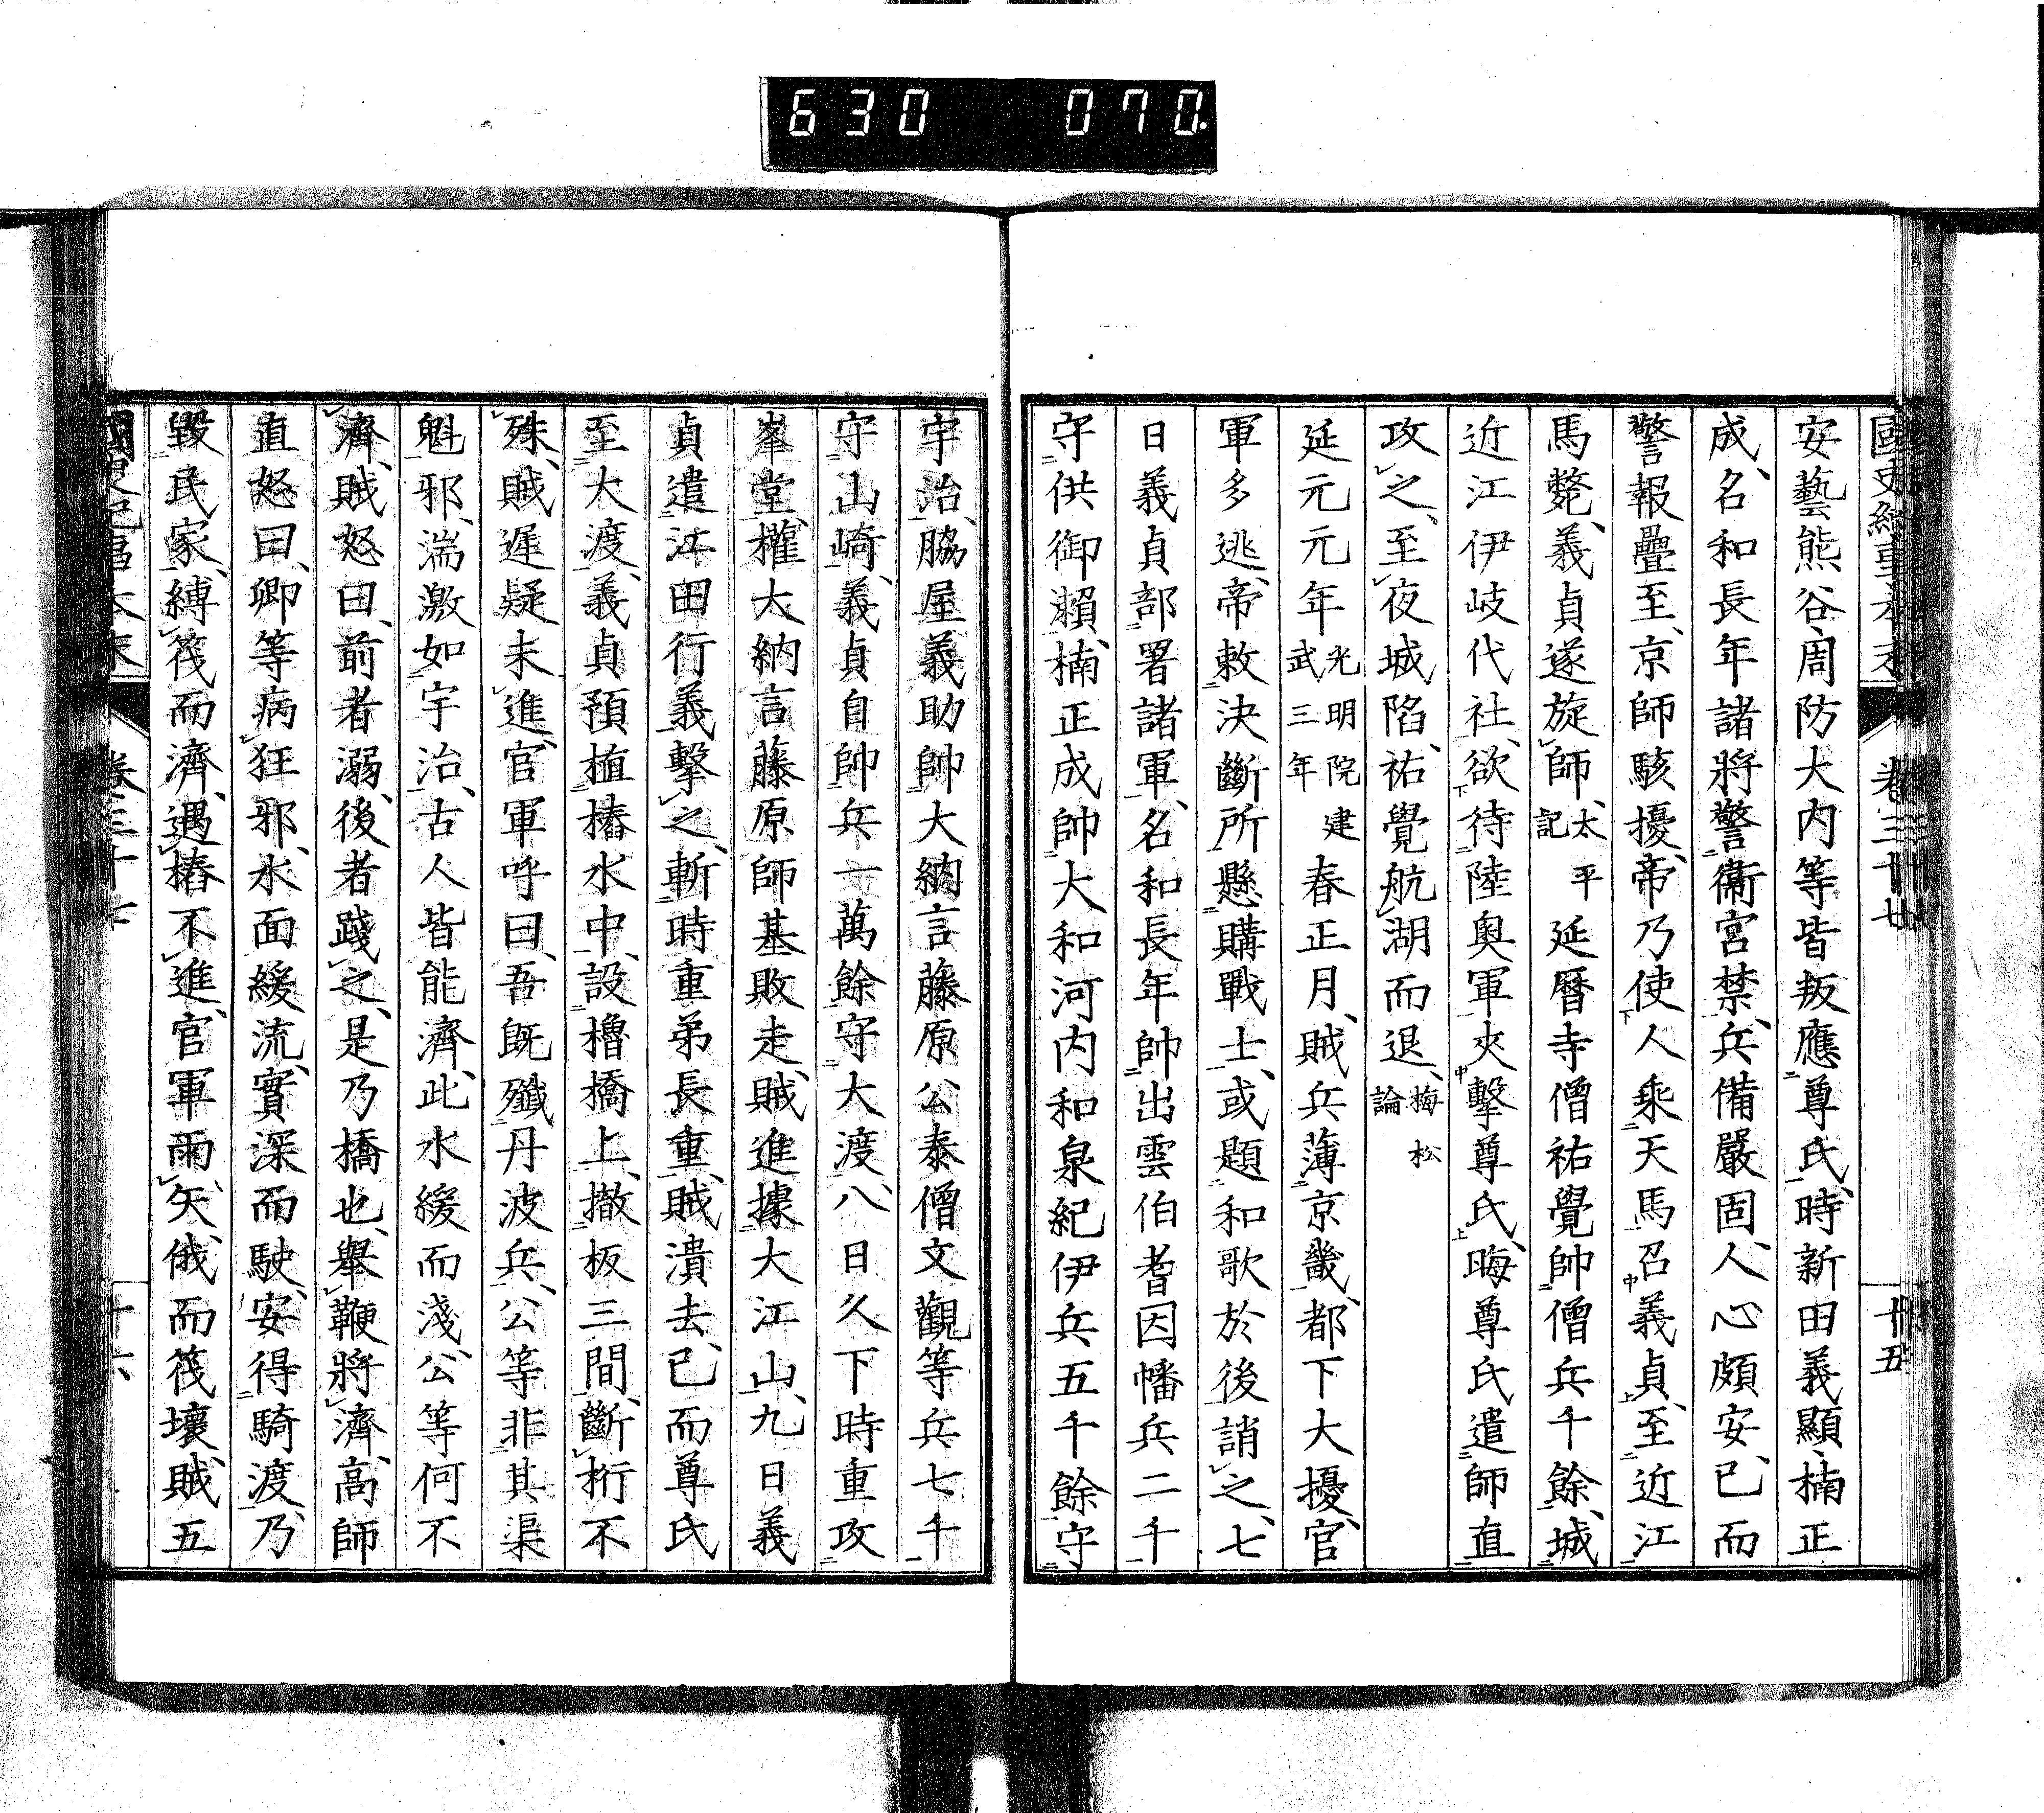 630 070.
國史紀事本末 卷三十七 十五
安藝熊谷周防大内等皆叛應尊氏、時新田義顯楠正
成、名和長年諸將警衞宮禁、兵備嚴固、人心頗安、已而
警報疊至、京師駭擾、帝乃使人乘天馬召義貞、至近江
馬斃、義貞遂旋師、太平記 延曆寺僧祐覺帥僧兵千餘、城
近江伊岐代社、欲待陸奧軍夾擊尊氏、晦尊氏遣師直
攻之、至夜城陷、祐覺航湖而退、梅松論
延元元年光明院建武三年春正月、賊兵薄京畿、都下大擾、官
軍多逃、帝敕決斷所懸購戰士、或題和歌於後誚之、七
日義貞部署諸軍、名和長年帥出雲伯耆因幡兵二千
守供御瀨、楠正成帥大和河内和泉紀伊兵五千餘守
宇治、脇屋義助帥大納言藤原公泰僧文觀等兵七千
守山崎、義貞自帥兵一萬餘守大渡、八日久下時重攻
峯堂、權大納言藤原師基敗走、賊進據大江山、九日義
貞遣江田行義擊之、斬時重弟長重、賊潰去、已而尊氏
至大渡、義貞預植樁水中、設櫓橋上、撤板三間、斷桁不
殊、賊遲疑未進、官軍呼曰、吾既殲丹波兵、公等非其渠
魁邪、湍激如宇治、古人皆能濟、此水緩而淺、公等何不
濟、賊怒曰、前者溺、後者踐之、是乃橋也、舉鞭將濟、高師
直怒曰、卿等病狂邪、水面緩流、實深而駛、安得騎渡、乃
毀民家、縛筏而濟、遇樁不進、官軍雨矢、俄而筏壞、賊五
國史紀事本末 卷三十七 十六